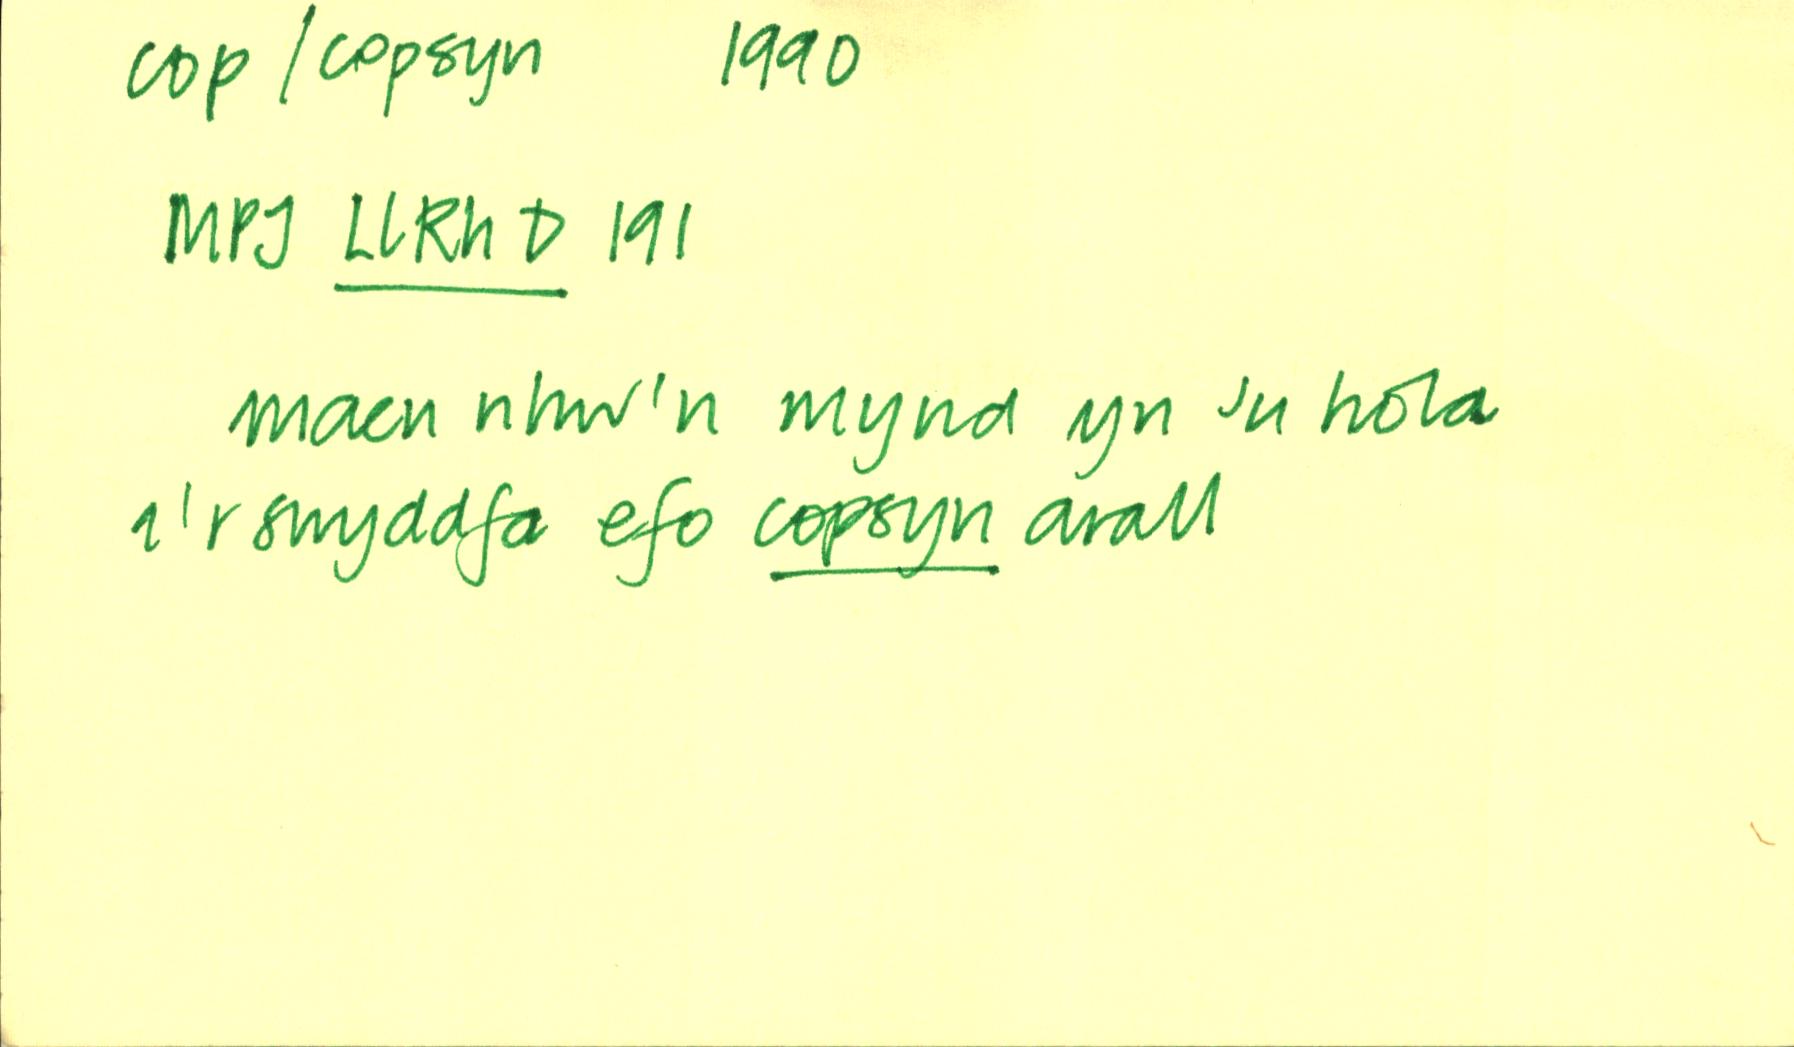 cop / copsyn 1990
MPJ LlRh D 191
maen nhw'n mynd yn 'u hola
i'r swyddfa efo copsyn arall